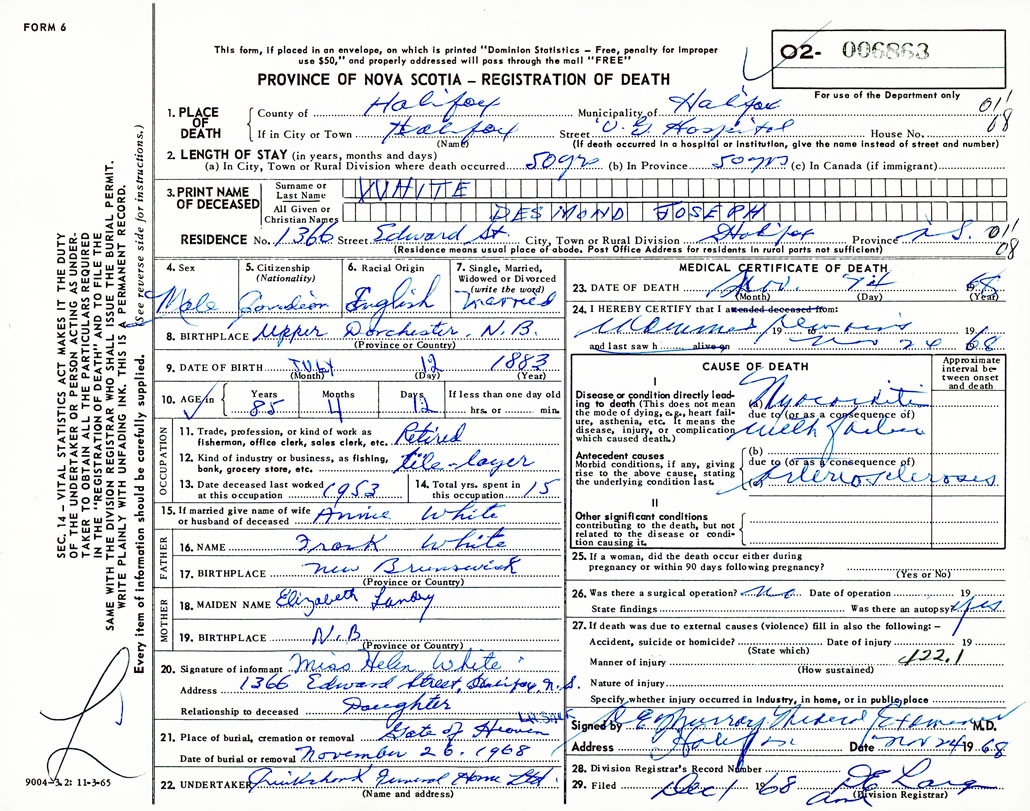 FORM 6
This form, if placed in an envelope, on which is printed "Dominion Statistics — Free, penalty for improper
use $50," and properly addressed will pass through the mail "FREE"
O2- 006863
PROVINCE OF NOVA SCOTIA — REGISTRATION OF DEATH
For use of the Department only
1. PLACE OF DEATH
County of Halifax Municipality of Halifax
If in City or Town Halifax Street V. G. Hospital House No.
(Name) (If death occurred in a hospital or institution, give the name instead of street and number)
011
68
2. LENGTH OF STAY (in years, months and days)
(a) In City, Town or Rural Division where death occurred 50 yrs (b) In Province 50 yrs (c) In Canada (if immigrant)
3. PRINT NAME OF DECEASED
Surname or Last Name WHITE
All Given or Christian Names DESMOND JOSEPH
RESIDENCE No. 1366 Street Edward St. City, Town or Rural Division Halifax Province N.S.
(Residence means usual place of abode. Post Office Address for residents in rural parts not sufficient)
011
08
4. Sex Male
5. Citizenship (Nationality) Canadian
6. Racial Origin English
7. Single, Married, Widowed or Divorced (write the word) Married
8. BIRTHPLACE Upper Dorchester, N.B.
(Province or Country)
9. DATE OF BIRTH JULY 12 1883
(Month) (Day) (Year)
10. AGE in Years 85 Months 4 Days 12 If less than one day old hrs. or min.
OCCUPATION
11. Trade, profession, or kind of work as fisherman, office clerk, sales clerk, etc. Retired
12. Kind of industry or business, as fishing, bank, grocery store, etc. tile-layer
13. Date deceased last worked at this occupation 1953
14. Total yrs. spent in this occupation 15
15. If married give name of wife or husband of deceased Annie White
FATHER
16. NAME Frank White
17. BIRTHPLACE New Brunswick
(Province or Country)
MOTHER
18. MAIDEN NAME Elizabeth Landry
19. BIRTHPLACE N.B
(Province or Country)
20. Signature of informant Miss Helen White
Address 1366 Edward Street, Halifax, N.S.
Relationship to deceased Daughter
21. Place of burial, cremation or removal Gate of Heaven
Date of burial or removal November 26, 1968
22. UNDERTAKER Cruikshank Funeral Home Ltd.
(Name and address)
MEDICAL CERTIFICATE OF DEATH
23. DATE OF DEATH Nov. 68
(Month) (Day) (Year)
24. I HEREBY CERTIFY that I attended deceased from:
19 to 19
and last saw h alive on Nov 24 68
CAUSE OF DEATH
Approximate interval between onset and death
I
Disease or condition directly leading to death (This does not mean the mode of dying, e.g., heart failure, asthenia, etc. it means the disease, injury, or complication which caused death.)
(a) Myocarditis
due to (or as a consequence of)
with failure
Antecedent causes
Morbid conditions, if any, giving rise to the above cause, stating the underlying condition last.
(b)
due to (or as a consequence of)
(c) arteriosclerosis
II
Other significant conditions
contributing to the death, but not related to the disease or condition causing it.
25. If a woman, did the death occur either during
pregnancy or within 90 days following pregnancy?
(Yes or No)
26. Was there a surgical operation? No Date of operation 19
State findings Was there an autopsy? Yes
27. If death was due to external causes (violence) fill in also the following: —
Accident, suicide or homicide? Date of injury 19
(State which)
Manner of injury 422.1
(How sustained)
Nature of injury
Specify whether injury occurred in industry, in home, or in public place
Signed by Murray Medical Examiner M.D.
Address Halifax Date Nov 24 1968
28. Division Registrar's Record Number
29. Filed Dec 1 1968
(Division Registrar)
SEC. 14 – VITAL STATISTICS ACT MAKES IT THE DUTY
OF THE UNDERTAKER OR PERSON ACTING AS UNDER-
TAKER TO OBTAIN ALL THE PARTICULARS REQUIRED
IN THE "REGISTRATION OF DEATH" AND TO FILE THE
SAME WITH THE DIVISION REGISTRAR WHO SHALL ISSUE THE BURIAL PERMIT.
WRITE PLAINLY WITH UNFADING INK. THIS IS A PERMANENT RECORD.
Every item of information should be carefully supplied. (See reverse side for instructions.)
9004-3.2: 11-3-65